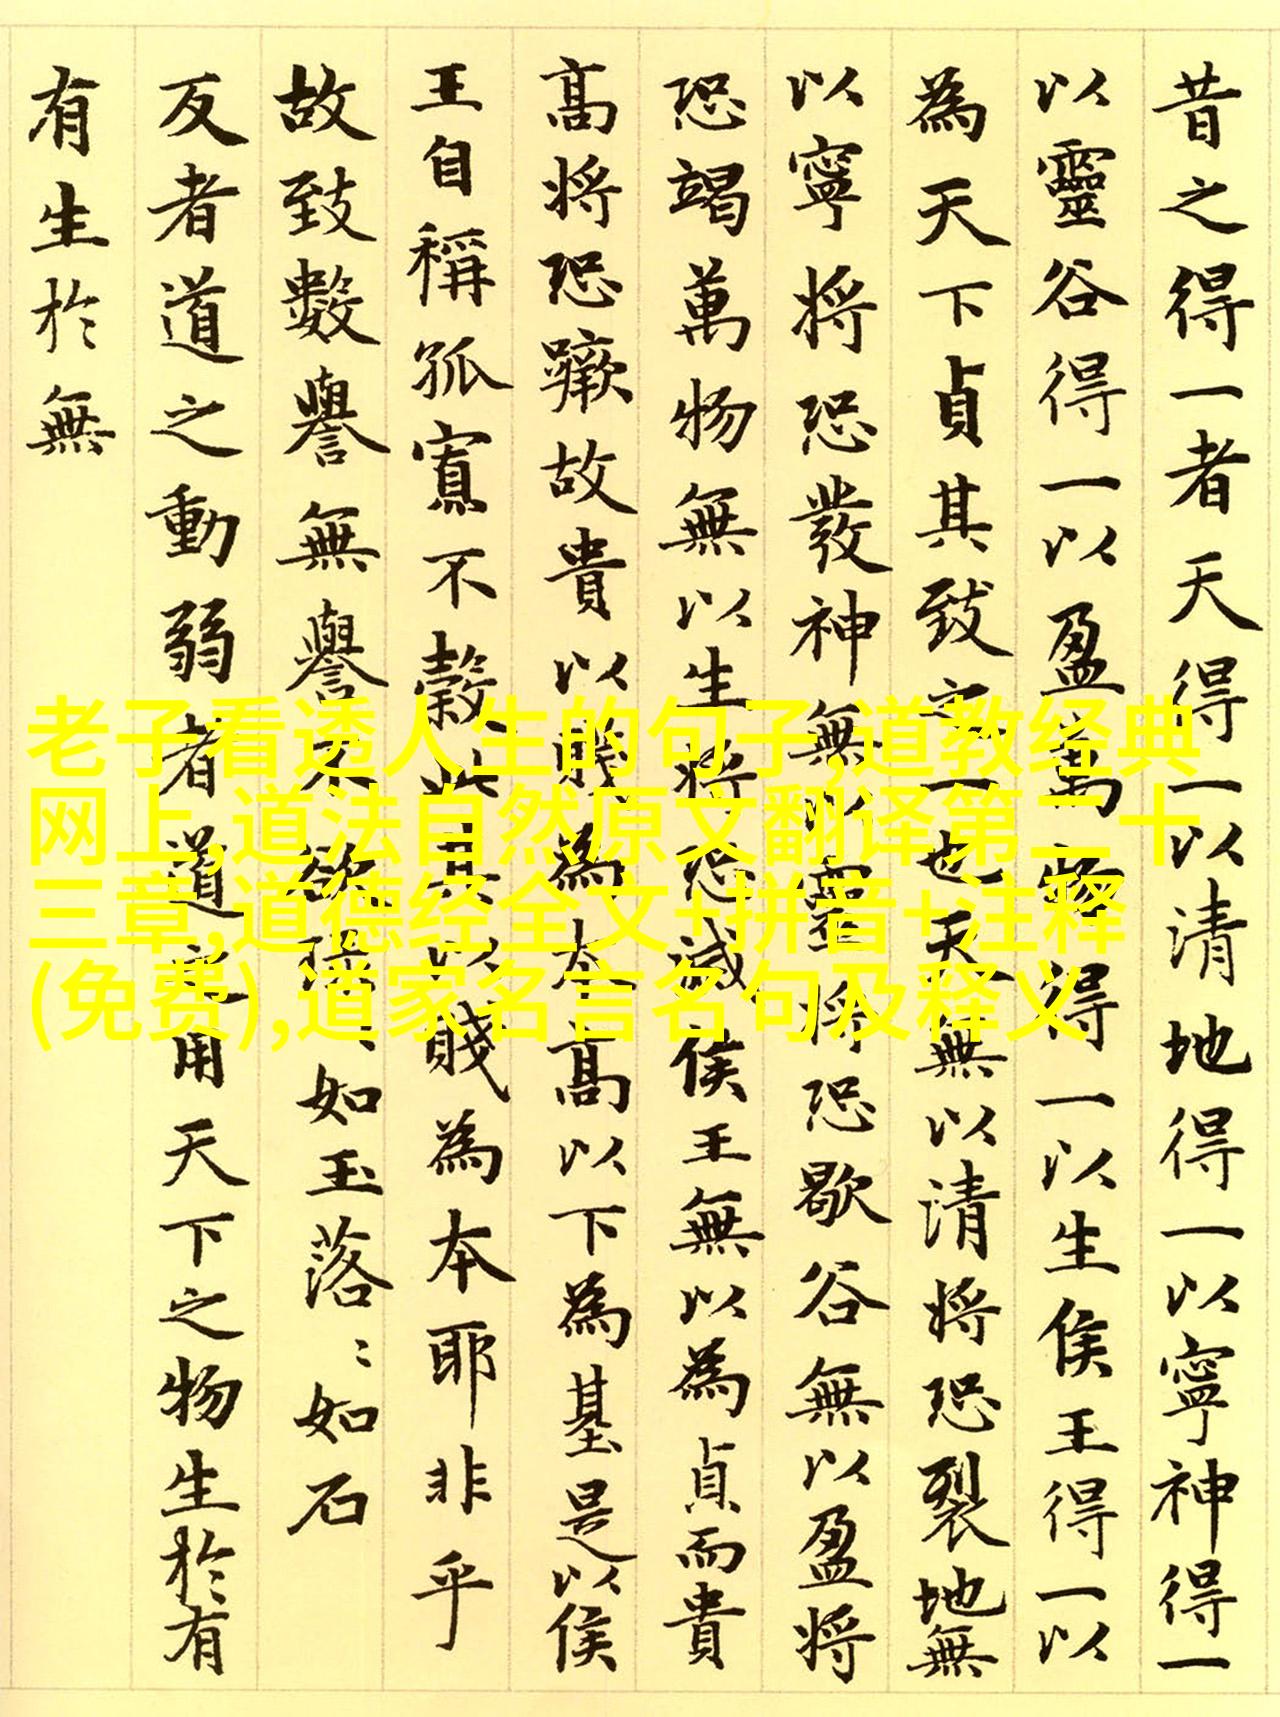 昔之得一者天得一以清地得一以寧神得一
以靈谷得一以盈萬物得一以生侯王得一以
為天下貞其致之一也天無以清將恐裂地無
以寧將恐發神無以靈將恐歇谷無以盈將
恐竭萬物無以生將恐滅侯王無以為貞而貴
高將恐蹶故貴以賤為本高以下為基是以侯
王自稱孤寡不穀此其以賤為本耶非乎
故致數譽無譽不欲琭〻如玉落〻如石
反者道之動弱者道之用天下之物生於有
有生於無
老子看透人生的句子,道教经典
网上,道法自然原文翻译第二十
三章,道德经全文+拼音+注释
(免费),道家名言名句及释义